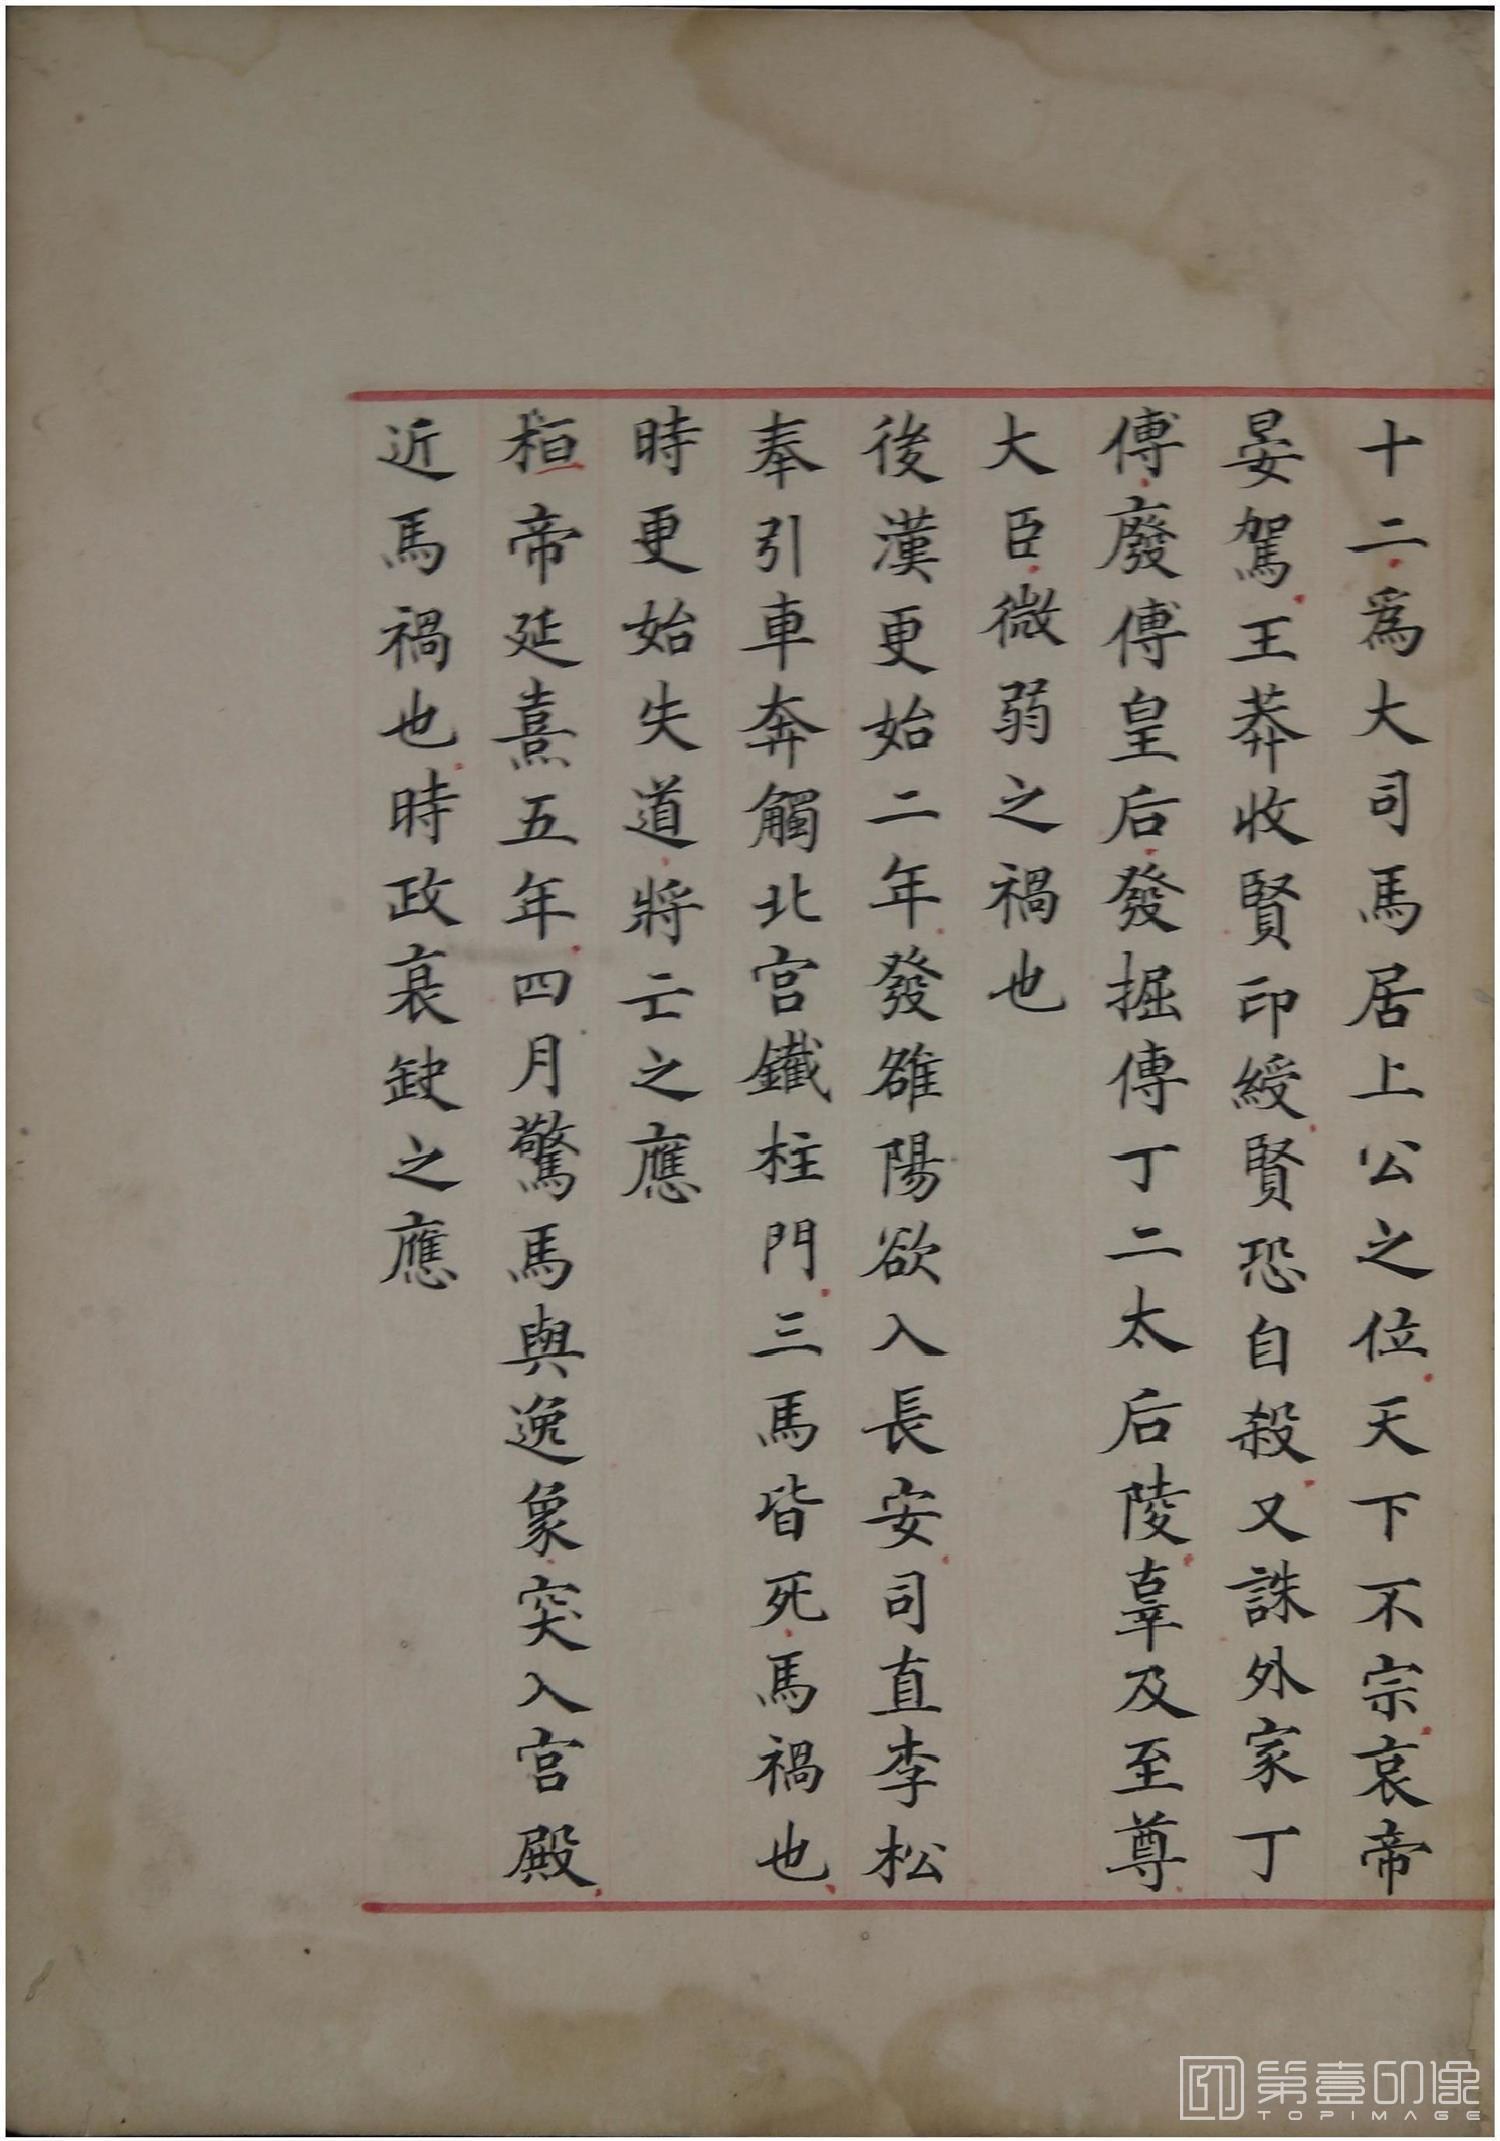 十二為大司馬居上公之位天下不宗哀帝
晏駕王莽收賢印綬賢恐自殺又誅外家丁
傅廢傅皇后發掘傅丁二太后陵辜及至尊
大臣微弱之禍也
後漢更始二年發雒陽欲入長安司直李松
奉引車奔觸北宮鐵柱門三馬皆死馬禍也
時更始失道將亡之應
桓帝延熹五年四月驚馬與逸象突入宮殿
近馬禍也時政衰缺之應
第壹印像
TOPIMAGE